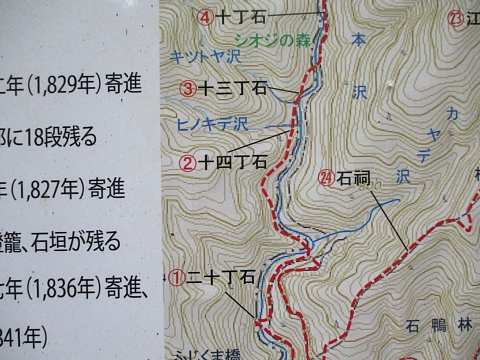 二年(1,829年)寄進
部に18段残る
年(1,827年)寄進
燈籠、石垣が残る
七年(1,836年)寄進、
841年)
④十丁石
シオジの森
キツトヤ沢
③十三丁石
ヒノキデ沢
②十四丁石
①二十丁石
ふじくま橋
本沢
㉓江
カヤデ沢
㉔石祠
石鴨林